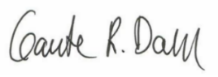 Gaute R. Dahl